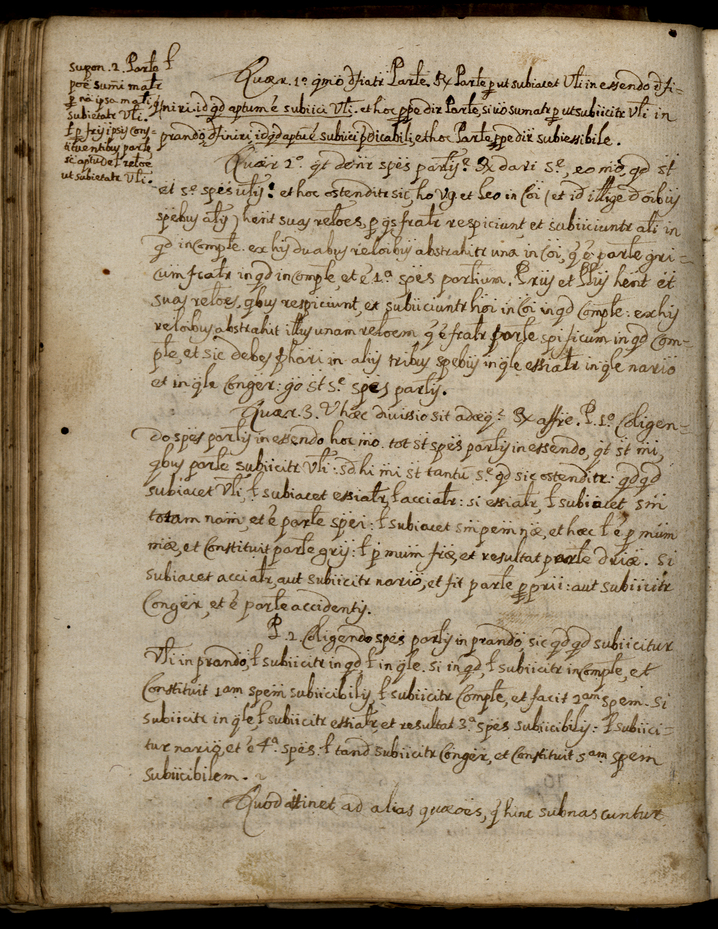 supon. 2. Parle ł
põe sumi matr
ꝑ nã ipsa mał.
subietatr Vłi.
ł ꝑ frij ipsis cons-
tituentibus parle
sic aptud.
ut subietatr Vłi.
Quær. 1.º qmõ dfiatr Parłe. Rx Parłe ꝑ ut subiacet Vłi in essendo dfi-
finiri id qd aptum ẽ subiici Vłi. et hoc ꝑpe dir Parłe, si vo sumatr ꝑ ut subiicitr Vłi in
prando, dfiniri id qd aptũ ẽ subiici pdicabili, et hoc Parłe ꝑpe dir subiessibile.
Quær 2.º qt denr spẽs parlis? Rx dari s.e, eo mõ, qd st
et s.e spẽs vłis: et hoc ostenditr sic, ho vg et leo in coi (et id illige d oibus
spẽbus ałis) hent suas reloẽs, ꝑ qs fratr respiciunt et subiiciuntr ali in
qd incomple. ex his duabus reloibus abstrahitr una in coi, q ẽ parłe gri-
cum fratr in qd incomple, et ẽ 1.a spẽs partium. Prus et Płus hent et
suas reloẽs, qbus respiciunt, et subiiciuntr hoi in coi in qd comple: ex his
reloibus abstrahit illus unam reloem q ẽ fratr parłe spificum in qd com-
ple, et sic debes phari in aliis tribus spẽbus in qle essiatr in qle nario
et in qle conger: go st s.e spẽs parlis.
Quær. 3. V hæc divissio sit adæq.ta Rx affire. P. 1.º colligen-
do spẽs parlis in essendo hoc mõ. tot st spẽs parlis in essendo, qt st mi,
qbus parłe subiicitr Vłi: sd hi mi st tantũ s.e qd sic ostenditr: qd qd
subiacet Vłi, ł subiacet essiatr, ł acciatr: si essiatr, ł subiacet sm
totam nam, et ẽ parłe spei: ł subiacet sm pem næ, et hæc ł ẽ ꝑ mum
miæ, et constituit parłe gris: ł ꝑ mum friæ, et resultat parłe driæ. Si
subiacet acciatr, aut subiicitr nario, et fit parłe ꝑprii: aut subiicitr
conger, et ẽ parłe accidentis.
P. 2. colligendo spẽs parlis in prando, sic qd qd subiicitur
Vłi in prando, ł subiicitr in qd ł in qle. si in qd, ł subiicitr incomple, et
constituit 1am spem subiicibilis, ł subiicitr comple, et facit 2am spem. Si
subiicitr in qle, ł subiicitr essiatr, et resultat 3.a spẽs subiicibilis: ł subiici-
tur nario, et ẽ 4.a spẽs. ł tand subiicitr conger, et constituit 5am spem
subiicibilem.
Quod attinet ad alias quæoẽs, q hinc subnascuntur